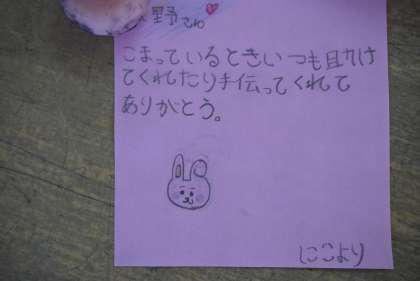 野さん
こまっているときいつも助け
てくれてたり手伝ってくれてて
ありがとう。
にこより